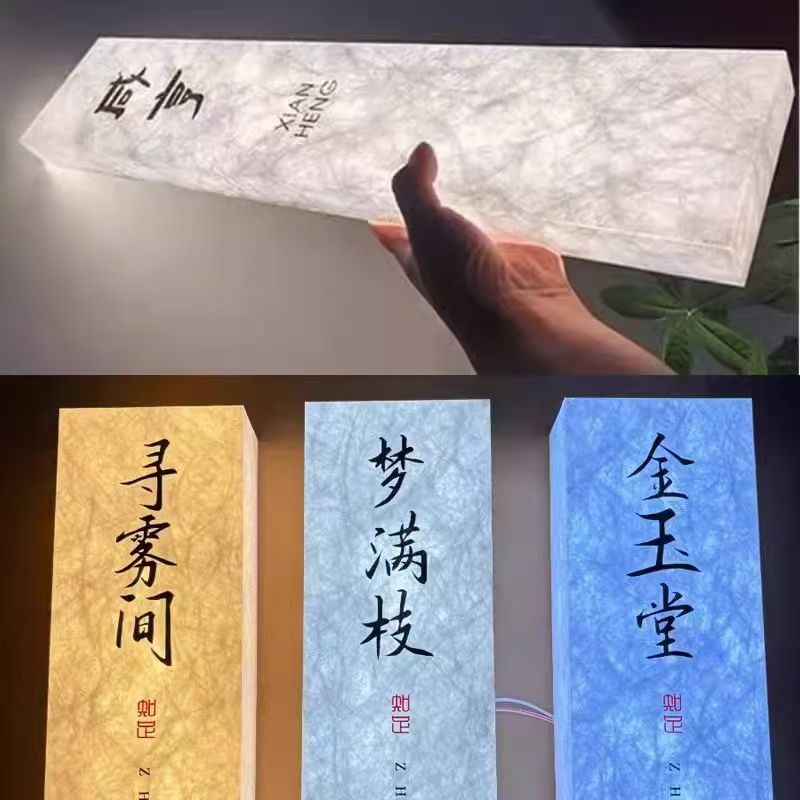 咸亨
XIAN
HENG
寻雾间
知足
Z H
梦满枝
知足
Z H
金玉堂
知足
Z H